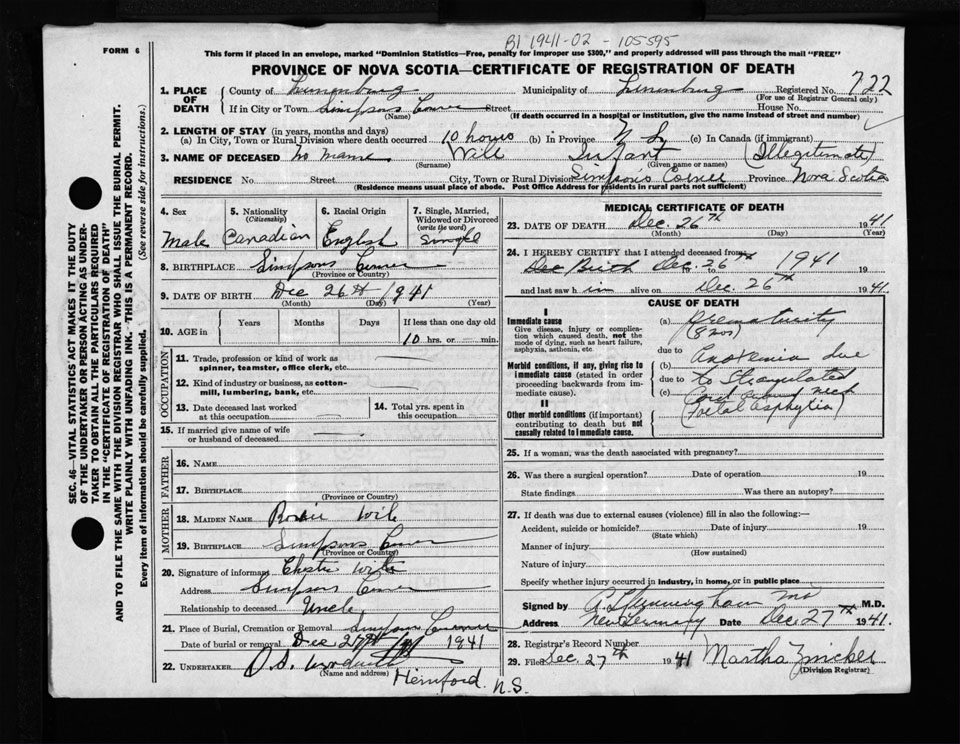 B1 1941-02 - 105595
FORM 6
This form if placed in an envelope, marked "Dominion Statistics—Free, penalty for improper use $300," and properly addressed will pass through the mail "FREE"
PROVINCE OF NOVA SCOTIA—CERTIFICATE OF REGISTRATION OF DEATH
1. PLACE OF DEATH
County of Lunenburg Municipality of Lunenburg Registered No. 722
(For use of Registrar General only)
If in City or Town Simpsons Corner Street House No.
(Name) (If death occurred in a hospital or institution, give the name instead of street and number)
2. LENGTH OF STAY (in years, months and days)
(a) In City, Town or Rural Division where death occurred 10 hours (b) in Province N S (c) In Canada (if immigrant)
3. NAME OF DECEASED No Name Wile Infant (Illegitimate)
(Surname) (Given name or names)
RESIDENCE No. Street City, Town or Rural Division Simpson's Corner Province Nova Scotia
(Residence means usual place of abode. Post Office Address for residents in rural parts not sufficient)
4. Sex
Male
5. Nationality
(Citizenship)
Canadian
6. Racial Origin
English
7. Single, Married, Widowed or Divorced
(write the word)
Single
8. BIRTHPLACE Simpsons Corner
(Province or Country)
9. DATE OF BIRTH Dec 26th 1941
(Month) (Day) (Year)
10. AGE in
Years Months Days If less than one day old
10 hrs. or min.
OCCUPATION
11. Trade, profession or kind of work as spinner, teamster, office clerk, etc.
12. Kind of industry or business, as cotton-mill, lumbering, bank, etc.
13. Date deceased last worked at this occupation
14. Total yrs. spent in this occupation
15. If married give name of wife or husband of deceased
FATHER
16. NAME
17. BIRTHPLACE
(Province or Country)
MOTHER
18. MAIDEN NAME Wile
19. BIRTHPLACE Simpsons Corner
(Province or Country)
20. Signature of informant Wile
Address Simpsons Corner
Relationship to deceased Uncle
21. Place of Burial, Cremation or Removal Simpson Corner
Date of burial or removal Dec 27th 1941
22. UNDERTAKER
(Name and address)
Hemford. N.S.
MEDICAL CERTIFICATE OF DEATH
23. DATE OF DEATH Dec. 26th 1941
(Month) (Day) (Year)
24. I HEREBY CERTIFY that I attended deceased from
Birth Dec. 26th to 1941 19
and last saw h im alive on Dec. 26th 1941.
CAUSE OF DEATH
I
Immediate cause
Give disease, injury or complication which caused death, not the mode of dying, such as heart failure, asphyxia, asthenia, etc.
Morbid conditions, if any, giving rise to immediate cause (stated in order proceeding backwards from immediate cause).
II
Other morbid conditions (if important) contributing to death but not causally related to immediate cause.
(a) Prematurity
due to
(b) Anoxemia due
due to
(c) to Strangulated
Cord neck
(Foetal Asphyxia)
25. If a woman, was the death associated with pregnancy?
26. Was there a surgical operation? Date of operation 19
State findings Was there an autopsy?
27. If death was due to external causes (violence) fill in also the following:—
Accident, suicide or homicide? Date of injury 19
(State which)
Manner of injury
(How sustained)
Nature of injury
Specify whether injury occurred in industry, in home, or in public place
Signed by M.D.
Address New Germany Date Dec. 27th 1941.
28. Registrar's Record Number
29. Filed Dec. 27th 1941 Martha Zwicker
(Division Registrar)
SEC. 46—VITAL STATISTICS ACT MAKES IT THE DUTY
OF THE UNDERTAKER OR PERSON ACTING AS UNDER-
TAKER TO OBTAIN ALL THE PARTICULARS REQUIRED
IN THE "CERTIFICATE OF REGISTRATION OF DEATH"
AND TO FILE THE SAME WITH THE DIVISION REGISTRAR WHO SHALL ISSUE THE BURIAL PERMIT.
WRITE PLAINLY WITH UNFADING INK.—THIS IS A PERMANENT RECORD.
Every item of information should be carefully supplied. (See reverse side for instructions.)